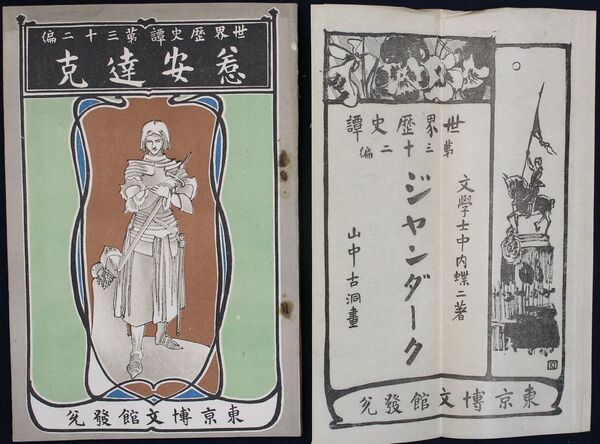 世界歴史譚第三十二編
惹安達克
東京博文館發兌
世界歴史譚
第三十二編
文學士中内蝶二著
ジヤンダーク
山中古洞畫
東京博文館發兌